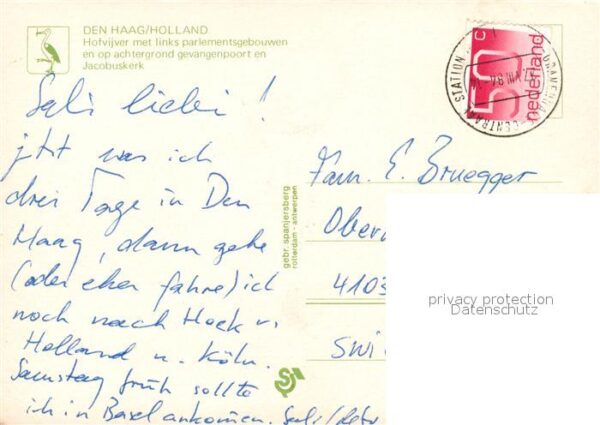 DEN HAAG/HOLLAND
Hofvijver met links parlementsgebouwen
en op achtergrond gevangenpoort en
Jacobuskerk
Sali liebi !
jtzt war ich
drei Tage in Den
Haag, dann gehe
(oder eher fahre) ich
noch nach Hoek v.
Holland u. Köln.
Samstag früh sollte
ich in Basel ankommen. Sali/
gebr. spanjersberg
rotterdam - antwerpen
50 c
nederland
CENTRAAL STATION
VIII.84
Fam. E. Bruegger
Ober
4103
Swi
privacy protection
Datenschutz